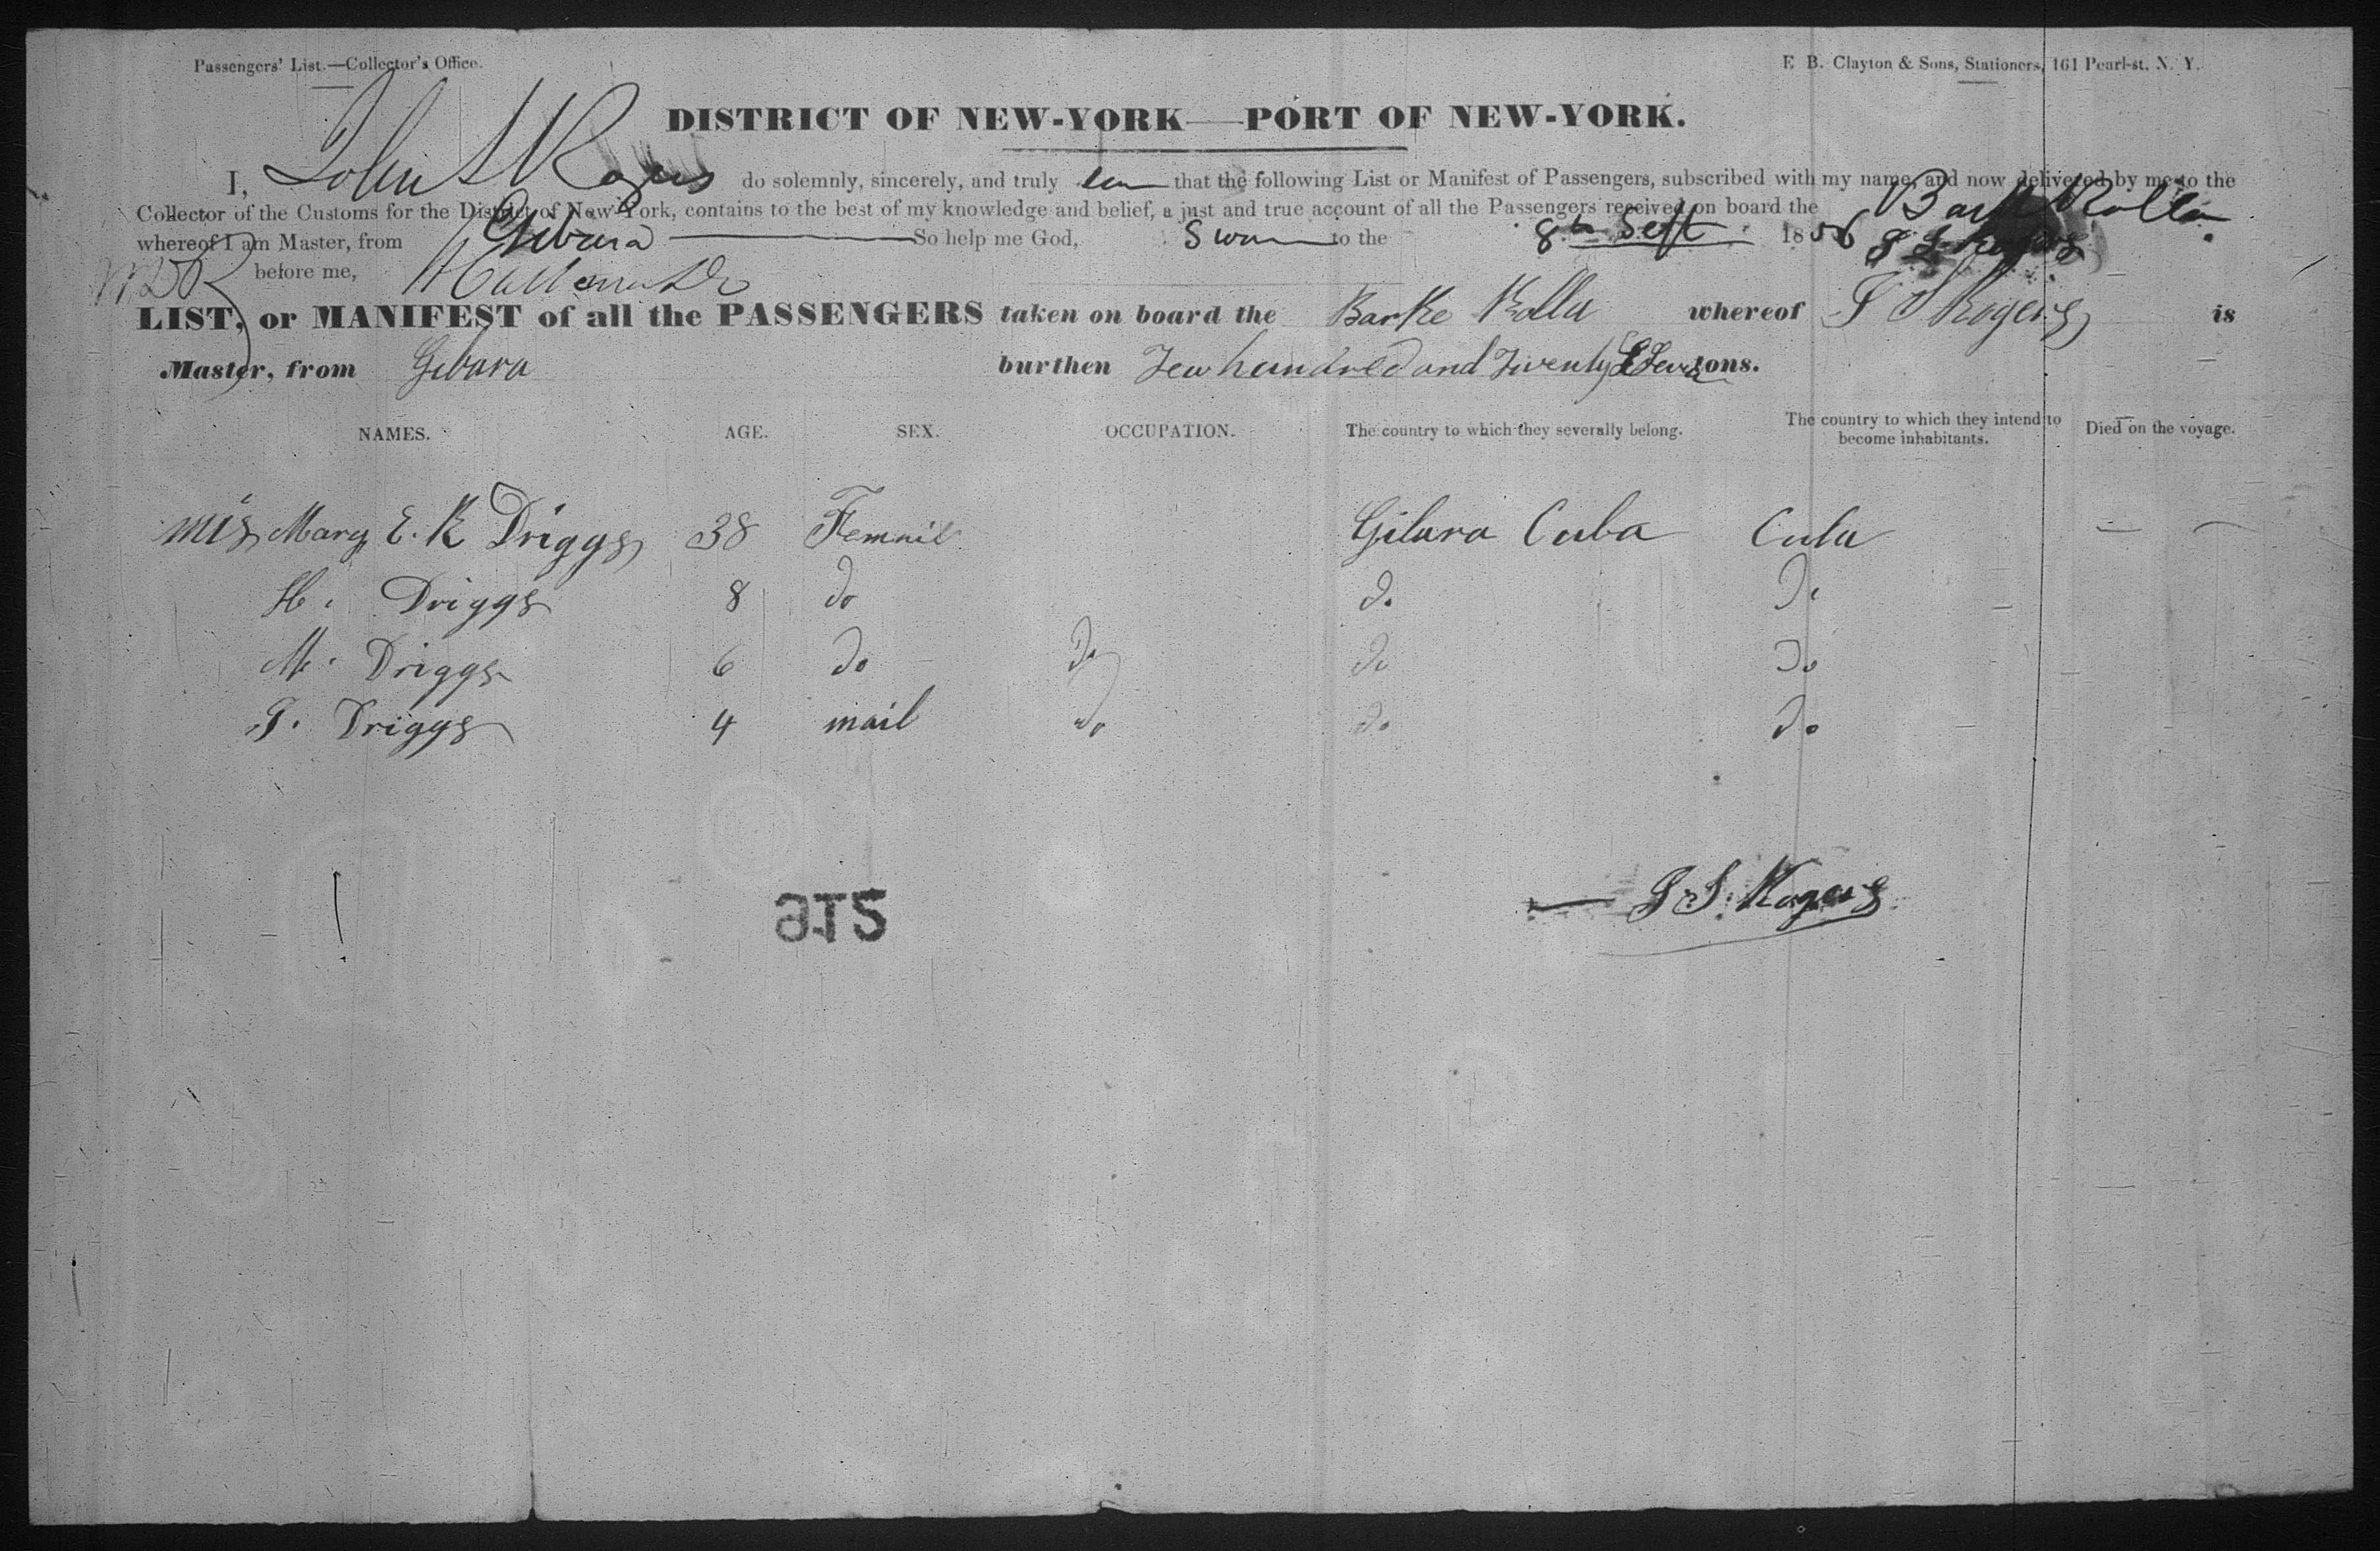 Passengers' List.—Collector's Office.
E. B. Clayton & Sons, Stationers, 161 Pearl-st. N. Y.
DISTRICT OF NEW-YORK—PORT OF NEW-YORK.
I, John S Rogers do solemnly, sincerely, and truly that the following List or Manifest of Passengers, subscribed with my name, and now delivered by me to the
Collector of the Customs for the District of New-York, contains to the best of my knowledge and belief, a just and true account of all the Passengers received on board the Bark Rolla
whereof I am Master, from Gibara So help me God, Sworn to the 8th Sept 1856 J S Rogers
before me,
LIST, or MANIFEST of all the PASSENGERS taken on board the Barke Rolla whereof J S Rogers is
Master, from Gibara burthen Tew hundred and Twenty tons.
NAMES. AGE. SEX. OCCUPATION. The country to which they severally belong. The country to which they intend to become inhabitants. Died on the voyage.
Mis Mary E. K Driggs 38 Femail Gibara Cuba Cuba
H. Driggs 8 do do do
M. Driggs 6 do do do do
T. Driggs 4 mail do do do
J S. Rogers
215